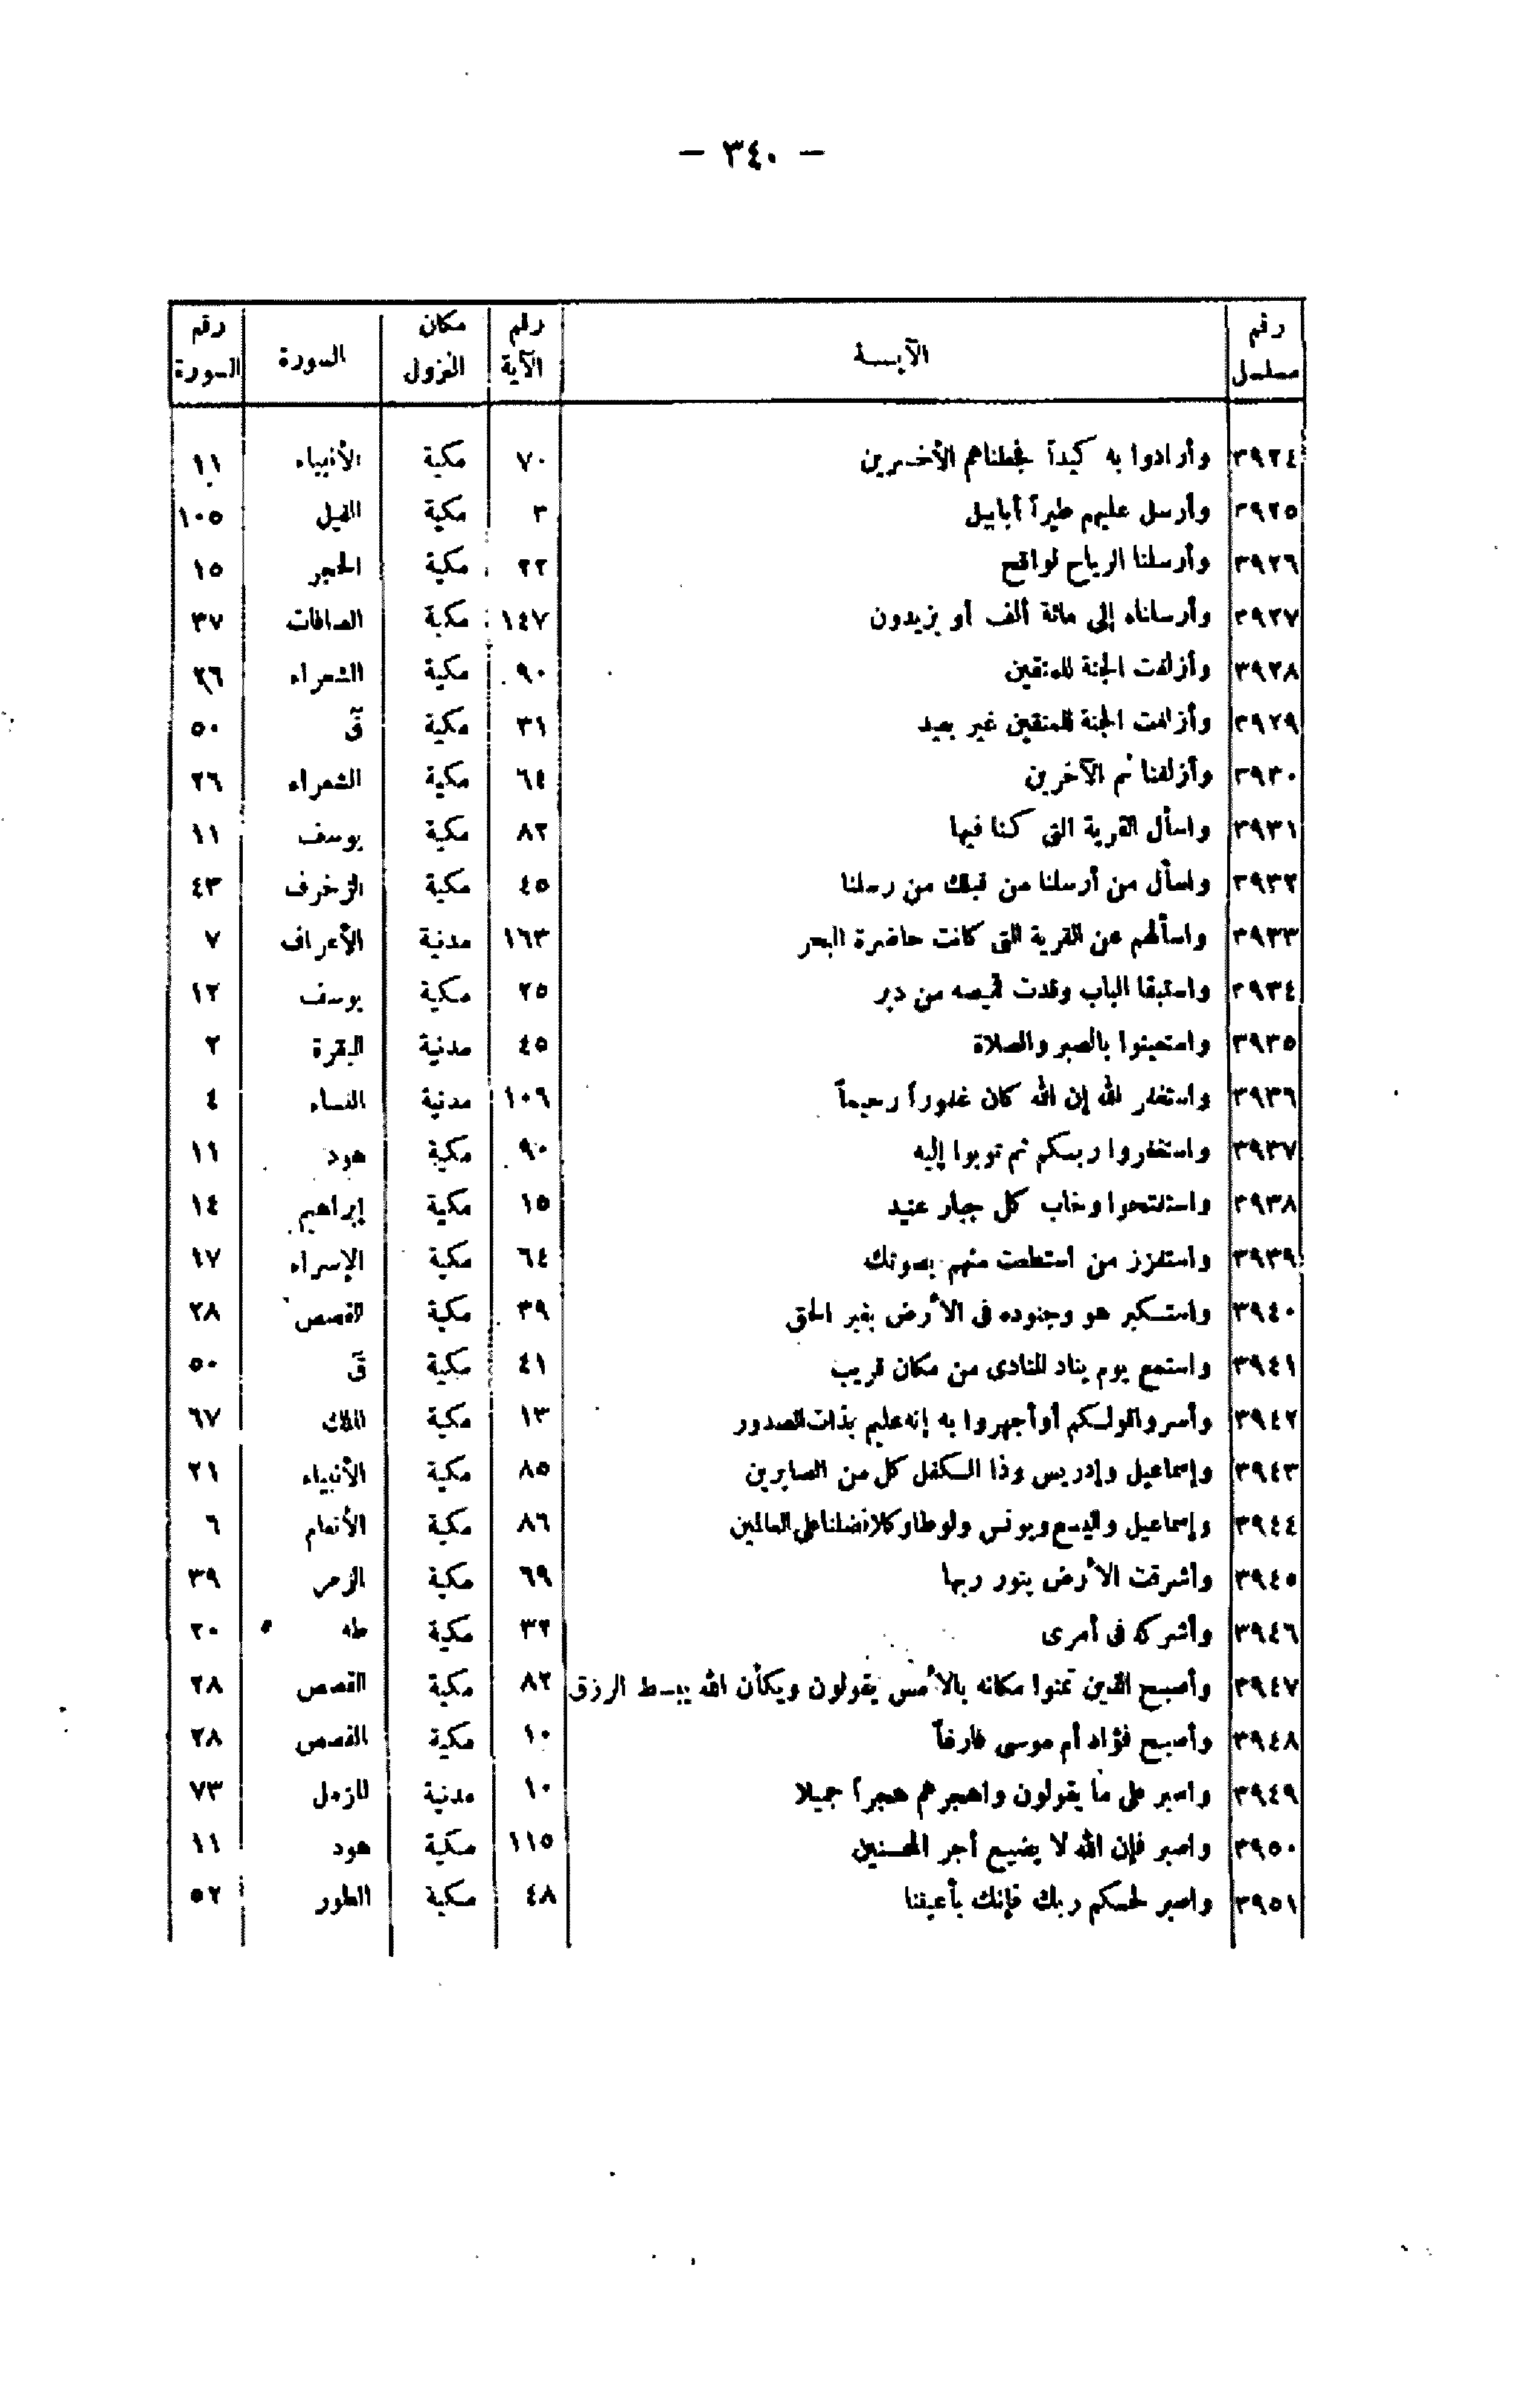 — ٣٤٠ —
رقم مسلسل | الآيـــة | رقم الآية | مكان النزول | السورة | رقم السورة
٣٩٢٤ | وأرادوا به كيداً فجعلناهم الأخسرين | ٧٠ | مكية | الأنبياء | ١١
٣٩٢٥ | وأرسل عليهم طيراً أبابيل | ٣ | مكية | الفيل | ١٠٥
٣٩٢٦ | وأرسلنا الرياح لواقح | ٢٢ | مكية | الحجر | ١٥
٣٩٢٧ | وأرسلناه إلى مائة ألف أو يزيدون | ١٤٧ | مكية | الصافات | ٣٧
٣٩٢٨ | وأزلفت الجنة للمتقين | ٩٠ | مكية | الشعراء | ٢٦
٣٩٢٩ | وأزلفت الجنة للمتقين غير بعيد | ٣١ | مكية | قٓ | ٥٠
٣٩٣٠ | وأزلفنا ثم الآخرين | ٦٤ | مكية | الشعراء | ٢٦
٣٩٣١ | واسأل القرية التى كنا فيها | ٨٢ | مكية | يوسف | ١١
٣٩٣٢ | واسأل من أرسلنا من قبلك من رسلنا | ٤٥ | مكية | الزخرف | ٤٣
٣٩٣٣ | واسألهم عن القرية التى كانت حاضرة البحر | ١٦٣ | مدنية | الأعراف | ٧
٣٩٣٤ | واستبقا الباب وقدت قميصه من دبر | ٢٥ | مكية | يوسف | ١٢
٣٩٣٥ | واستعينوا بالصبر والصلاة | ٤٥ | مدنية | البقرة | ٢
٣٩٣٦ | واستغفر الله إن الله كان غفوراً رحيماً | ١٠٦ | مدنية | النساء | ٤
٣٩٣٧ | واستغفروا ربكم ثم توبوا إليه | ٩٠ | مكية | هود | ١١
٣٩٣٨ | واستفتحوا وخاب كل جبار عنيد | ١٥ | مكية | إبراهيم | ١٤
٣٩٣٩ | واستفزز من استطعت منهم بصوتك | ٦٤ | مكية | الإسراء | ١٧
٣٩٤٠ | واستكبر هو وجنوده فى الأرض بغير الحق | ٣٩ | مكية | القصص | ٢٨
٣٩٤١ | واستمع يوم يناد المنادى من مكان قريب | ٤١ | مكية | قٓ | ٥٠
٣٩٤٢ | وأسروا قولكم أو أجهروا به إنه عليم بذات الصدور | ١٣ | مكية | الملك | ٦٧
٣٩٤٣ | وإسماعيل وإدريس وذا الكفل كل من الصابرين | ٨٥ | مكية | الأنبياء | ٢١
٣٩٤٤ | وإسماعيل واليسع ويونس ولوطا وكلا فضلنا على العالمين | ٨٦ | مكية | الأنعام | ٦
٣٩٤٥ | وأشرقت الأرض بنور ربها | ٦٩ | مكية | الزمر | ٣٩
٣٩٤٦ | وأشركه فى أمرى | ٣٢ | مكية | طه | ٢٠
٣٩٤٧ | وأصبح الذين تمنوا مكانه بالأمس يقولون ويكأن الله يبسط الرزق | ٨٢ | مكية | القصص | ٢٨
٣٩٤٨ | وأصبح فؤاد أم موسى فارغاً | ١٠ | مكية | القصص | ٢٨
٣٩٤٩ | واصبر على ما يقولون واهجرهم هجراً جميلا | ١٠ | مدنية | المزمل | ٧٣
٣٩٥٠ | واصبر فإن الله لا يضيع أجر المحسنين | ١١٥ | مكية | هود | ١١
٣٩٥١ | واصبر لحكم ربك فإنك بأعيننا | ٤٨ | مكية | الطور | ٥٢